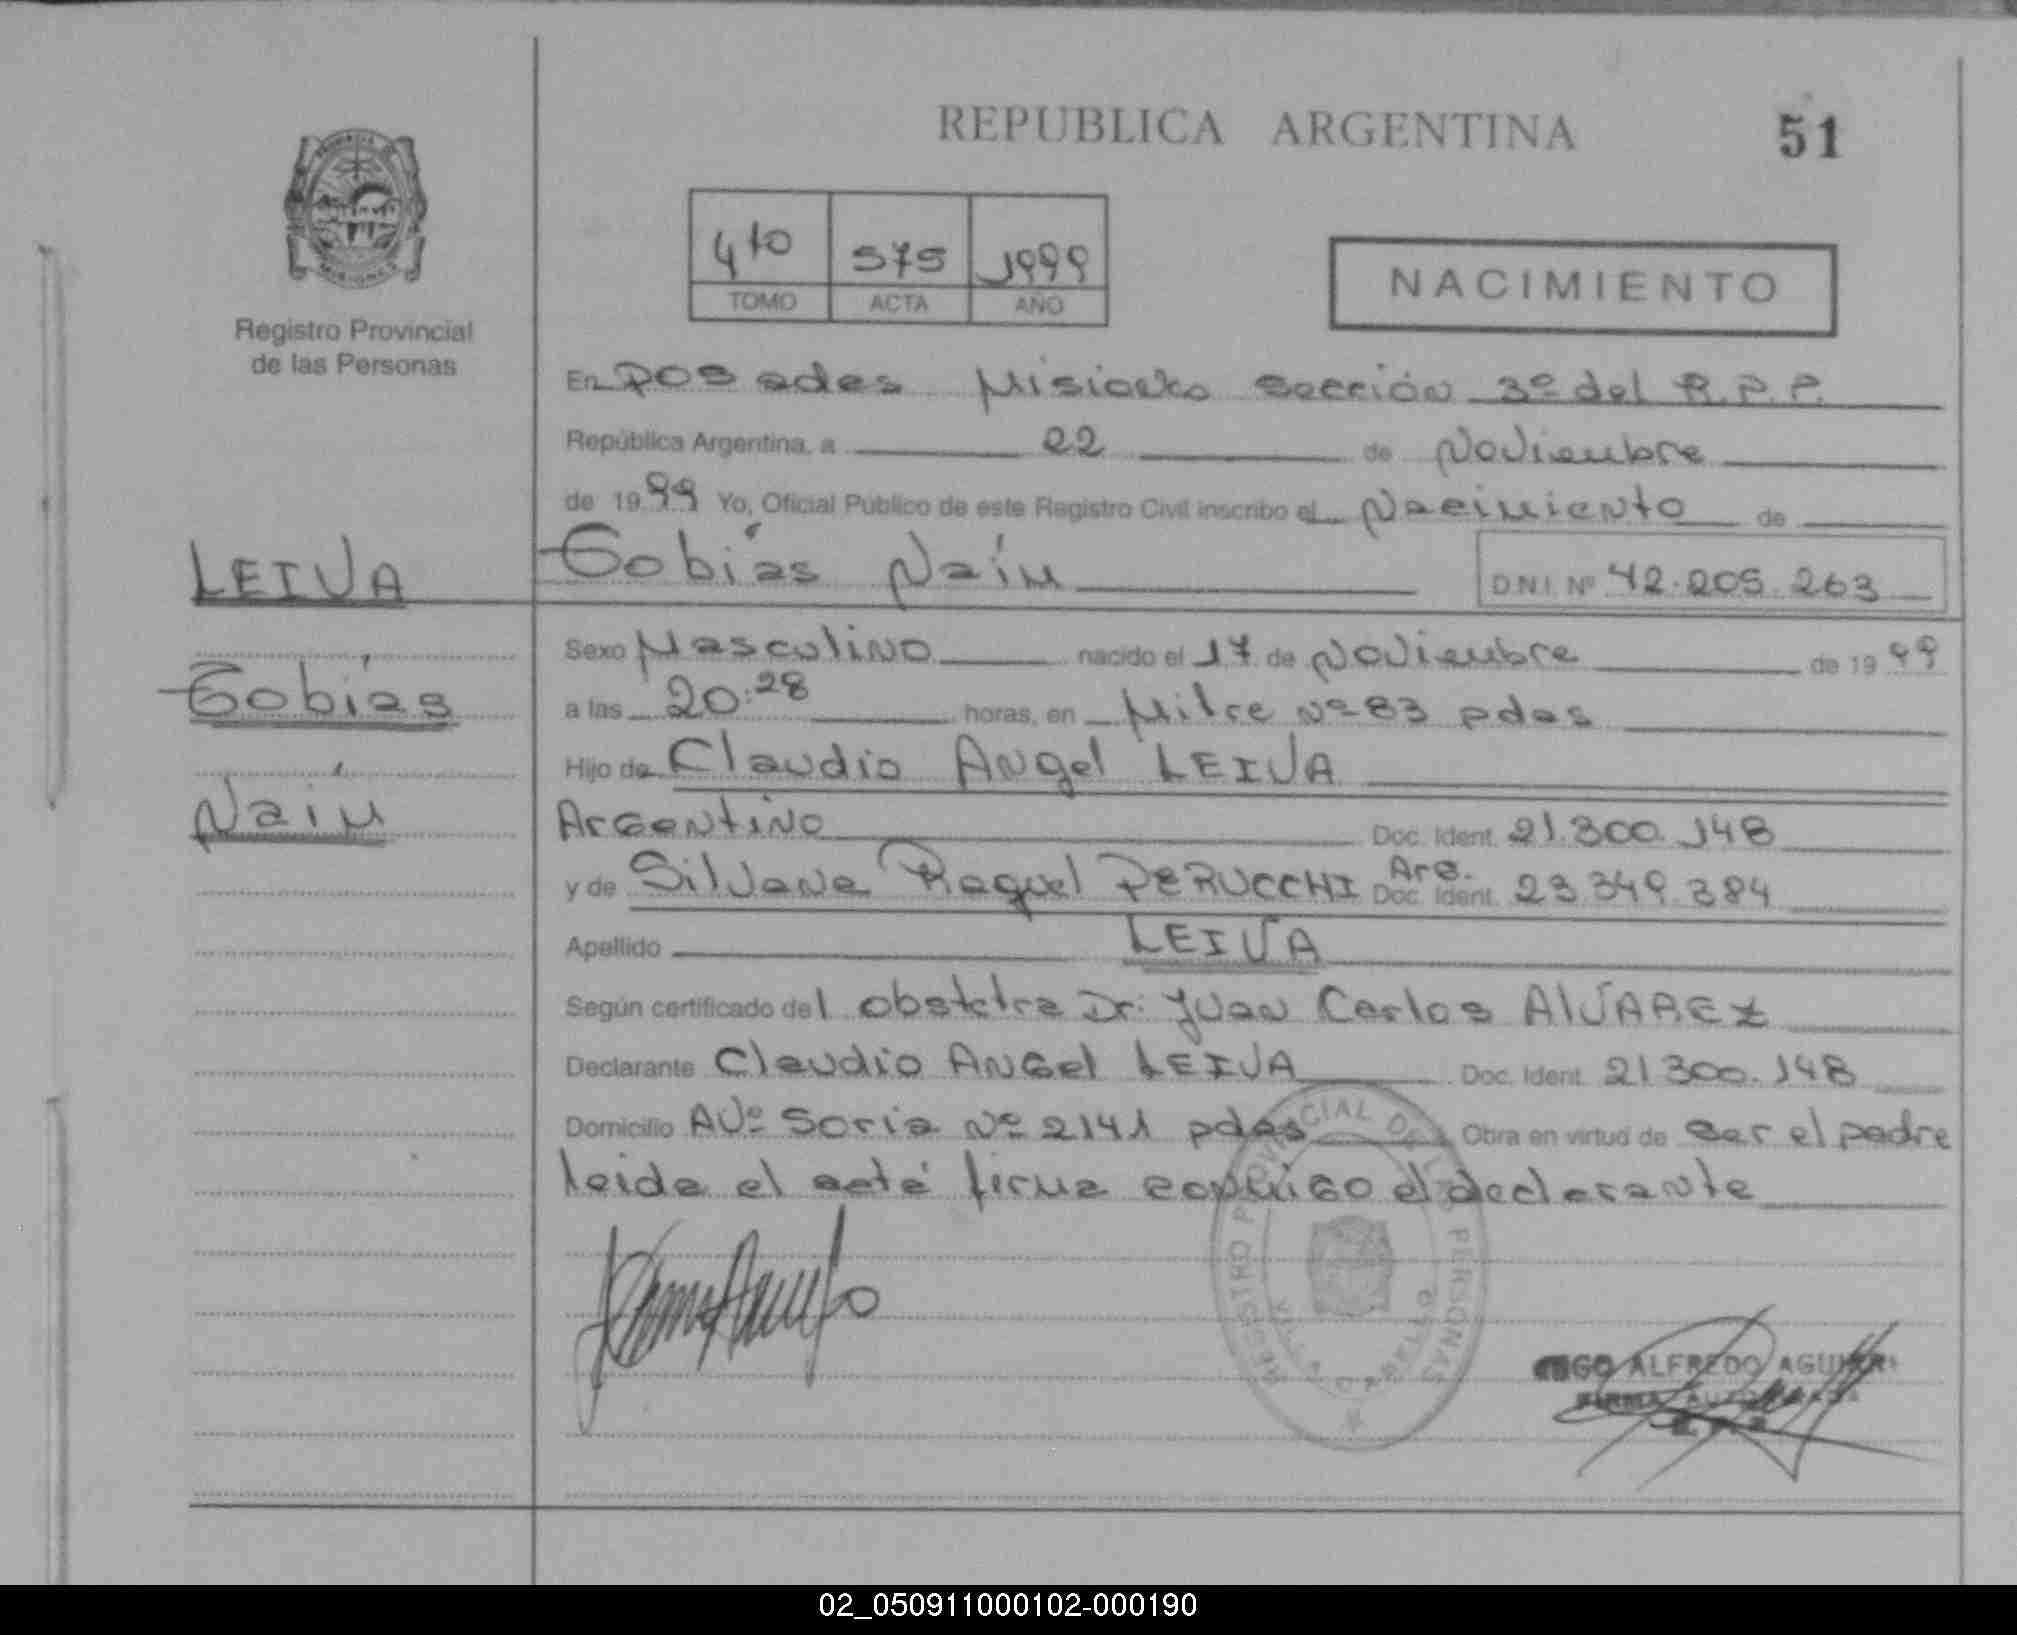 REPUBLICA ARGENTINA
51
410 575 1999
TOMO ACTA AÑO
NACIMIENTO
Registro Provincial
de las Personas
En Posadas Misiones sección 3º del R.P.P.
República Argentina, a 22 de Noviembre
de 1999 Yo, Oficial Público de este Registro Civil inscribo el Nacimiento de
LEIVA
Tobías Naím
D.N.I. Nº 42.205.263
Sexo Masculino nacido el 17 de Noviembre de 1999
Tobías
a las 20:28 horas, en Mitre Nº 83 pdas
Hijo de Claudio Angel LEIVA
Naím
Argentino Doc. Ident. 21.300.148
y de Silvana Raquel PERUCCHI Arg. Doc. Ident. 23.349.384
Apellido LEIVA
Según certificado del obstetra Dr: Juan Carlos ALVAREZ
Declarante Claudio Angel LEIVA Doc. Ident. 21300.148
Domicilio AVº Soria Nº 2141 pdas Obra en virtud de ser el padre
leida el acta firma conmigo el declarante
REGISTRO PROVINCIAL DE LAS PERSONAS
VILLA CABELLO
ALFREDO
FIRMA
02_050911000102-000190